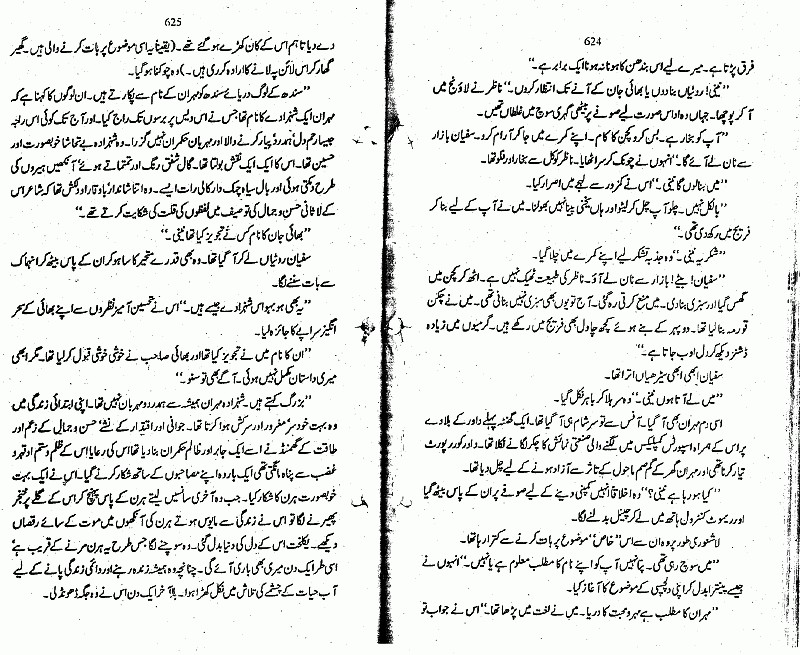 624
فرق پڑتا ہے۔ میرے لیے اس بندھن کا ہونا نہ ہونا ایک برابر ہے۔“
”نینی! روٹیاں بنا دوں یا بھائی جان کے آنے تک انتظار کروں۔“ ناظر نے لاؤنج میں
آ کر پوچھا۔ جہاں وہ اداس صورت لیے صوفے پر بیٹھی گہری سوچ میں غلطاں تھیں۔
”آپ کو بخار ہے۔ بس کرو کچن کا کام۔ اپنے کمرے میں جا کر آرام کرو۔ سفیان بازار
سے نان لے آئے گا۔“ انہوں نے چونک کر سر اٹھایا۔ ناظر کو کل سے بخار اور فلو تھا۔
”میں بنا لوں گا نینی۔“ اس نے کمزور سے لہجے میں اصرار کیا۔
”بالکل نہیں۔ چلو آپ چل کر لیٹو اور ہاں یخنی پینا نہیں بھولنا۔ میں نے آپ کے لیے بنا کر
فریج میں رکھ دی تھی۔“
”شکریہ نینی۔“ وہ جذبہ تشکر لیے اپنے کمرے میں چلا گیا۔
”سفیان! بیٹے! بازار سے نان لے آؤ۔ ناظر کی طبیعت ٹھیک نہیں ہے۔ اٹھ کر کچن میں
گھس گیا اور سبزی بنا دی۔ میں منع کرتی رہ گئی۔ آج تو یوں بھی سبزی نہیں بنانی تھی۔ میں نے چکن
قورمہ بنا لیا تھا۔ دوپہر کے بنے ہوئے کچھ چاول بھی فریج میں رکھے ہیں۔ گرمیوں میں زیادہ
ڈشز دیکھ کر دل اوب جاتا ہے۔“
سفیان ابھی ابھی سیڑھیاں اترا تھا۔
”میں لے آتا ہوں نینی۔“ وہ سر ہلا کر باہر نکل گیا۔
اسی دم مہران بھی آ گیا۔ آفس سے تو سرشام ہی آ گیا تھا۔ ایک گھنٹہ پہلے داور کے بلاوے
پر اس کے ہمراہ اسپورٹس کمپلیکس میں لگنے والی صنعتی نمائش کا چکر لگانے نکلا تھا۔ داور کو رپورٹ
تیار کرنا تھی اور مہران گھر کے گم صم ماحول کے تاثر سے آزاد ہونے کے لیے چل دیا تھا۔
”کیا ہو رہا ہے نینی؟“ وہ اخلاقاً انہیں کمپنی دینے کے لیے صوفے پر ان کے پاس بیٹھ گیا
اور ریموٹ کنٹرول ہاتھ میں لے کر چینل بدلنے لگا۔
لاشعوری طور پر وہ ان سے اس ”خاص“ موضوع پر بات کرنے سے کترا رہا تھا۔
”میں سوچ رہی تھی۔ پتا نہیں آپ کو اپنے نام کا مطلب معلوم ہے یا نہیں۔“ انہوں نے
جیسے پینترا بدل کر اپنی دلچسپی کے موضوع کا آغاز کیا۔
”مہران کا مطلب ہے مہر و محبت کا دریا۔ میں نے لغت میں پڑھا تھا۔“ اس نے جواب تو
625
دے دیا تاہم اس کے کان کھڑے ہو گئے تھے۔ (یقیناً یہ اسی موضوع پر بات کرنے والی ہیں۔ گھیر
گھار کر اس لائن پہ لانے کا ارادہ کر رہی ہیں۔) وہ چوکنا ہو گیا۔
”سندھ کے لوگ دریائے سندھ کو مہران کے نام سے پکارتے ہیں۔ ان لوگوں کا کہنا ہے کہ
مہران ایک شہزادے کا نام تھا جس نے اس دیس پر برسوں تک راج کیا۔ اور آج تک کوئی اس راجہ
جیسا رحم دل‘ ہمدرد‘ پیار کرنے والا اور مہربان حکمران نہیں گزرا۔ وہ شہزادہ بے تحاشا خوبصورت اور
حسین تھا۔ اس کا ایک ایک نقش بولتا تھا۔ گال شفق رنگ اور تمتماتے ہوئے‘ آنکھیں ہیروں کی
طرح دمکتی ہوئی اور بال سیاہ چمک دار کالی رات ایسے۔ وہ اتنا شاندار‘ باوقار اور دلکش تھا کہ شاعر اس
کے لاثانی حسن و جمال کی توصیف میں لفظوں کی قلت کی شکایت کرتے تھے۔“
”بھائی جان کا نام کس نے تجویز کیا تھا نینی۔“
سفیان روٹیاں لے کر آ گیا تھا۔ وہ بھی قدرے متحیر کا سا ہو کر ان کے پاس بیٹھ کر انہماک
سے بات سننے لگا۔
”یہ بھی ہو بہو اس شہزادے جیسے ہیں۔“ اس نے تحسین آمیز نظروں سے اپنے بھائی کے سحر
انگیز سراپے کا جائزہ لیا۔
”ان کا نام میں نے تجویز کیا تھا اور بھائی صاحب نے خوشی خوشی قبول کر لیا تھا۔ مگر ابھی
میری داستان مکمل نہیں ہوئی۔ آگے بھی تو سنو۔“
”بزرگ کہتے ہیں۔ شہزادہ مہران ہمیشہ سے ہمدرد و مہربان نہیں تھا۔ اپنی ابتدائی زندگی میں
وہ بہت خودسر‘ مغرور اور سرکش ہوا کرتا تھا۔ جوانی اور اقتدار کے نشے‘ حسن و جمال کے زعم اور
طاقت کے گھمنڈ نے اسے ایک جابر اور ظالم حکمران بنا دیا تھا اس کی رعایا اس کے ظلم و ستم اور قہر و
غضب سے پناہ مانگتی تھی ایک بار وہ اپنے مصاحبوں کے ساتھ شکار کرنے گیا۔ اس نے ایک بہت
خوبصورت ہرن کا شکار کیا۔ جب وہ آخری سانسیں لیتے ہرن کے پاس پہنچ کر اس کے گلے پر خنجر
پھیرنے لگا تو اس نے زندگی سے مایوس ہوتے ہرن کی آنکھوں میں موت کے سائے رقصاں
دیکھے۔ یکلخت اس کے دل کی دنیا بدل گئی۔ وہ سوچنے لگا جس طرح یہ ہرن مرنے کے قریب ہے
اسی طرح ایک دن میری بھی باری آئے گی۔ چنانچہ وہ ہمیشہ زندہ رہنے اور دائمی زندگی پانے کے لیے
آب حیات کے چشمے کی تلاش میں نکل کھڑا ہوا۔ بالآخر ایک دن اس نے وہ جگہ ڈھونڈ لی۔